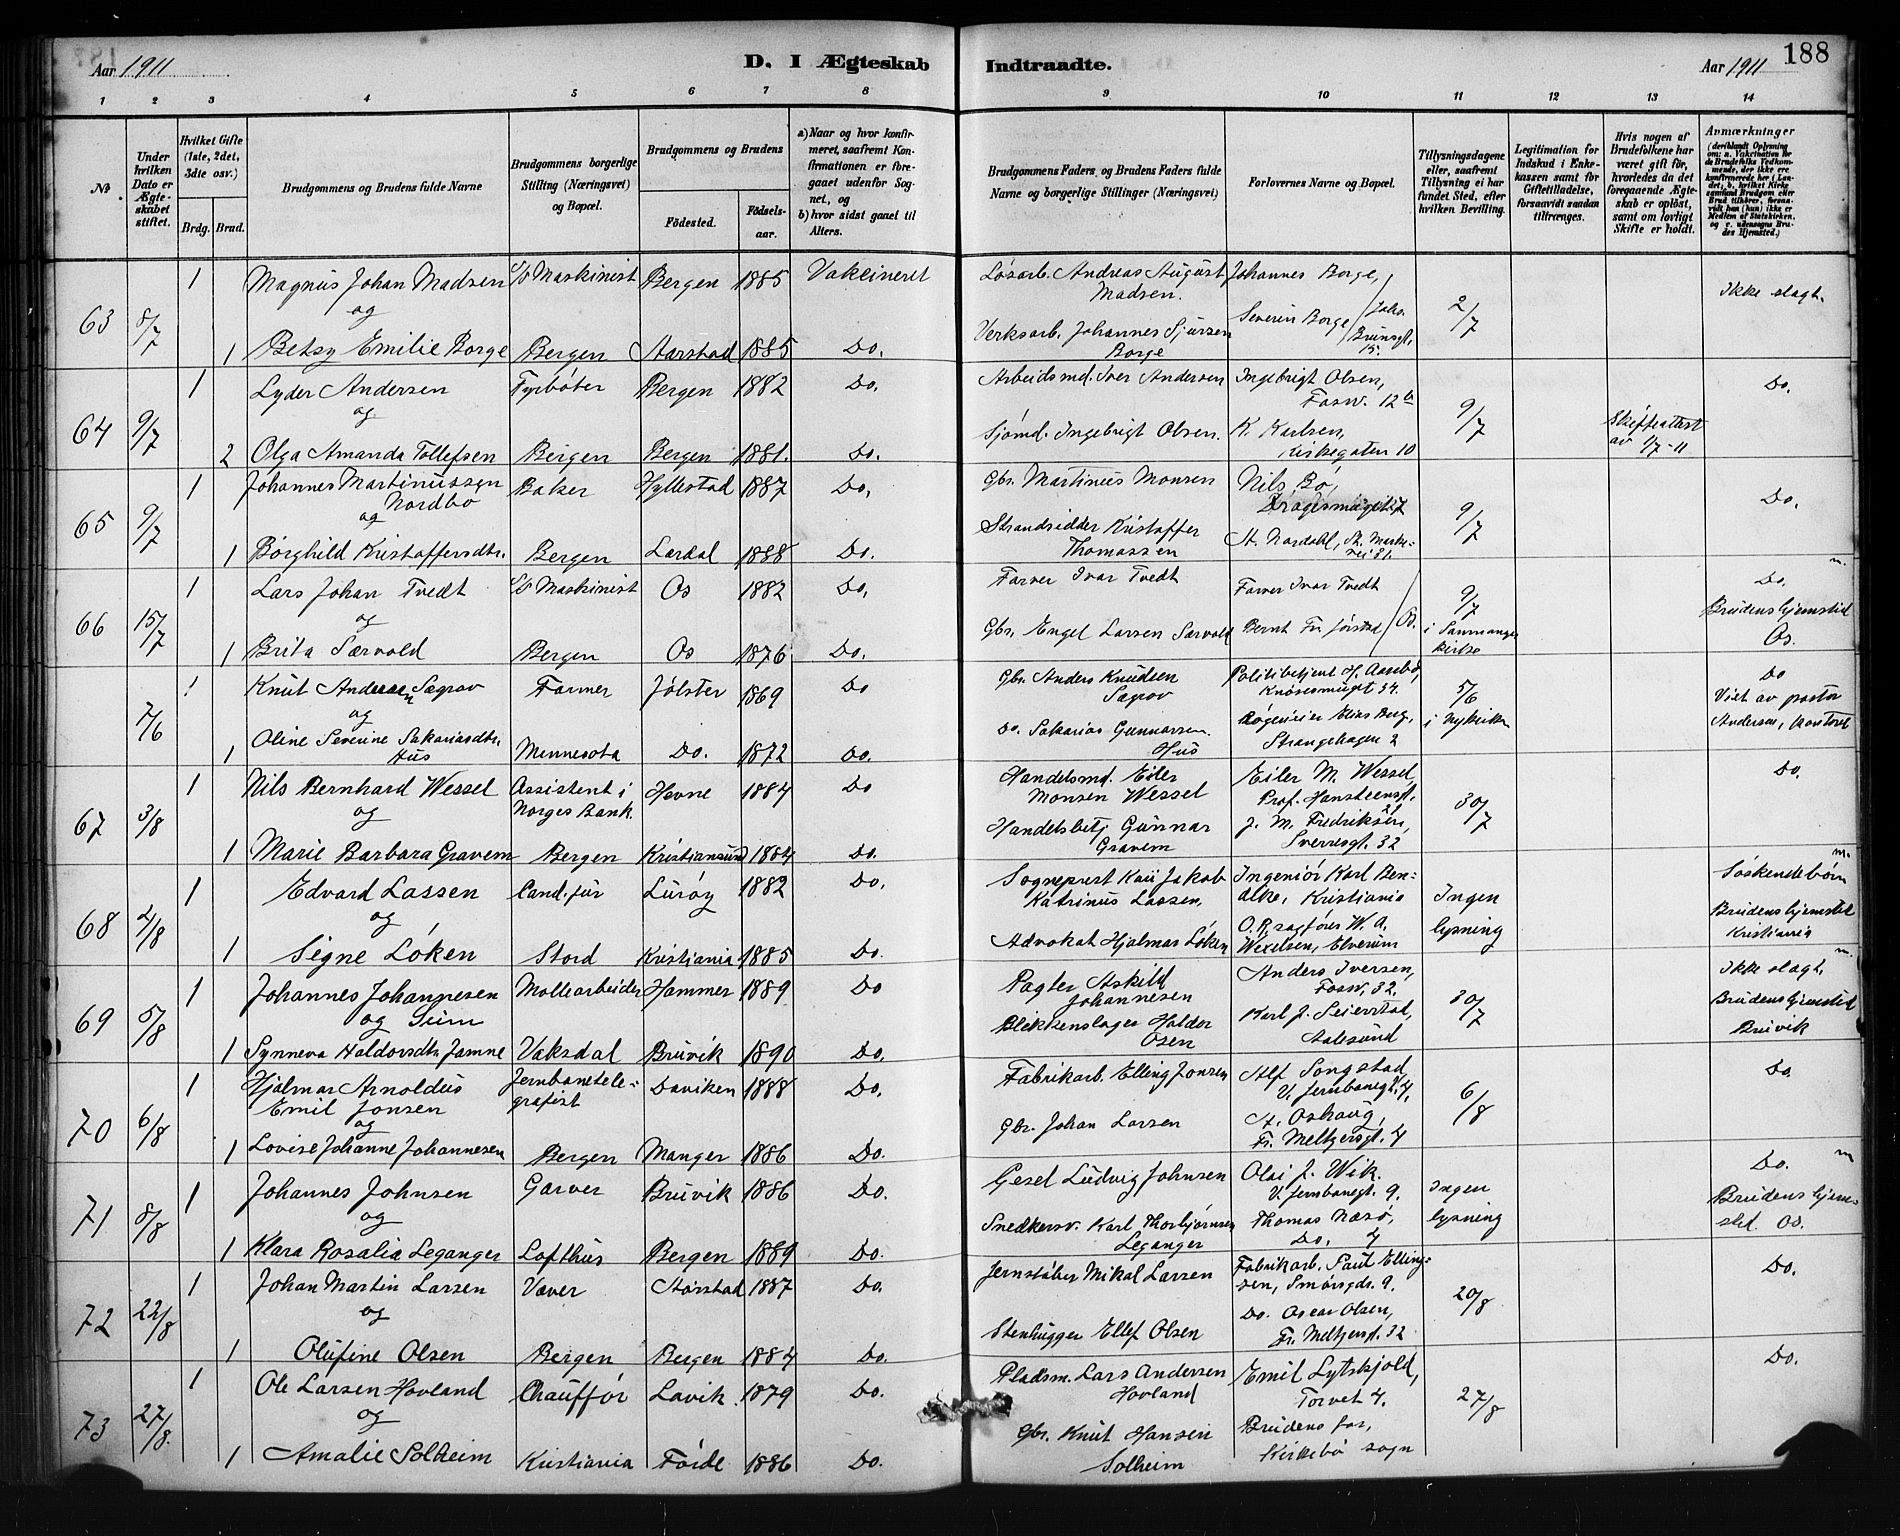 Aar 1911
D. I Ægteskab Indtraadte.
Aar 1911
188
1 2 3 4 5 6 7 8 9 10 11 12 13 14
No
Under hvilken Dato er Ægteskabet stiftet.
Hvilket Gifte (1ste, 2det, 3die osv.)
Brdg. Brud.
Brudgommens og Brudens fulde Navne
Brudgommens borgerlige Stilling (Næringsvei) og Bopæl.
Brudgommens og Brudens
Fødested.
Fødselsaar.
a) Naar og hvor konfirmeret, saafremt Konfirmationen er foregaaet udenfor Sognet, og
b) hvor sidst gaaet til Alters.
Brudgommens Faders, og Brudens Faders fulde Navne og borgerlige Stillinger (Næringsvei)
Forlovernes Navne og Bopæl.
Tillysningsdagene eller, saafremt Tillysning ei har fundet Sted, efter hvilken Bevilling.
Legitimation for Indskud i Enkekassen samt for Giftetilladelse, forsaavidt saadan tiltrænges.
Hvis nogen af Brudefolkene har været gift før, hvorledes da det foregaaende Ægteskab er opløst, samt om lovligt Skifte er holdt.
Anmærkninger
63 8/7 1 Magnus Johan Madsen S/S Maskinist Bergen 1885 Vakcineret Løsarb. Andreas August Madsen. Johannes Borge, 2/7 Ikke slagt.
og
1 Betsy Emilie Borge Bergen Aarstad 1885 Do. Verksarb. Johannes Sjursen Borge Severin Borge Joh. Brunsgt. 15.
64 9/7 1 Lyder Andersen Fyrbøter Bergen 1882 Do. Arbeidsmd. Iver Andersen Ingebrigt Olsen, Fosw. 12 b 9/7 Skifteattest av 1/7-11 Do.
og
2 Olga Amanda Tollefsen Bergen Bergen 1881. Do. Sjømd. Ingebrigt Olsen. K. Karlsen, Kirkegaten 10
65 9/7 1 Johannes Martinussen Nordbø Baker Hyllestad 1887 Do. Gbr. Martinus Monsen Nils Bø, Dragesmuget 7 9/7 Do.
og
1 Borghild Kristoffersdtr. Bergen Lærdal 1888 Do. Strandsidder Kristoffer Thomassen A. Nordahl,
66 15/7 1 Lars Johan Tvedt S/S Maskinist Os 1882 Do. Farver Ivar Tvedt Farver Ivar Tvedt 9/7 i Samnanger kirke Do. m.
og
1 Brita Særvold Bergen Os 1876 Do. Gbr. Engel Larsen Særvold Bernt Fr. Jørstad Os. Brudens hjemsted Os.
7/6 1 Knut Andersen Sægrov Farmer Jølster 1869 Do Gbr. Anders Knudsen Sægrov Politibetjent H. Aasebø, Knøsesmuget 34. 5/6 i Nykirken Do
og Viet av pastor
1 Oline Severine Sakariasdtr. Hus Minnesota Do. 1872 Do. Do. Sakarias Gunnarsen Hus Elias Berg, Strangehagen 2 Andersen,
67 3/8 1 Nils Bernhard Wessel Assistent i Norges Bank. Hevne 1884 Do Handelsmd. Eiler Monsen Wessel Eiler M. Wessel, Prof. Hansteensgt. 21 30/7 Do.
og
1 Marie Barbara Gravem Bergen Kristiansund 1884 Do. Handelsbetj Gunnar Gravem J. M. Fredriksen, Sverresgt. 32
68 2/8 1 Edvard Lassen Cand. jur Lurøy 1882 Do. Sogneprest Kaii Jakob Katrinus Lassen, Ingeniør Karl Kristiania Ingen lysning m. Søskendebørn
og
1 Signe Løken Stord Kristiania 1885 Do. Advokat Hjalmar Løken O.R.sagfører W. A. Wexelsen, Elverum Brudens hjemsted Kristiania
69 5/8 1 Johannes Johannesen Møllearbeider Hammer 1889 Do Pagter Askild Johannesen Anders Iversen, Fosw. 32. 30/7 m. Ikke slagt.
og Sum
1 Synneva Haldorsdtr. Jamne Vaksdal Bruvik 1890 Do. Blikkenslager Haldor Osen Karl J. Seierstad, Aalesund Brudens hjemsted Bruvik
70 6/8 1 Hjalmar Arnoldus Emil Jonsen Jernbanetelegrafist Daviken 1888 Do. Fabrikarb. Elling Jonsen Alf Songstad, V. Jernbanegt. 4, 6/8 Do.
og
1 Lovise Johanne Johannesen Bergen Manger 1886 Do. Gbr. Johan Larsen A. Oshaug, Fr. Meltzersgt. 4
71 8/8 1 Johannes Johnsen Garver Bruvik 1886 Do. Gesel Ludvig Johnsen Olai J. Wik. V. Jernbanegt. 9. Ingen lysning m Do.
og
1 Klara Rosalia Leganger Lofthus Bergen 1889 Do. Snedkersv. Karl Thorbjørnsen Leganger Thomas Næsø, Do. 4 Brudens hjemsted Os.
72 22/8 1 Johan Martin Larsen Væver Størstad 1887 Do. Jernstøber Mikal Larsen Fabrikarb. Paul Ellingsen, Smørsgdr. 9. 20/8 Do.
og
1 Olufine Olsen Bergen Bergen 1884 Do. Stenhugger Ellef Olsen Do. Oscar Olsen, Fr. Meltzersgt. 32
73 27/8. 1 Ole Larsen Hovland Chauffør Lavik 1879 Do. Pladsm. Lars Andersen Hovland Emil Lytskjold, Torvet 4. 27/8 Do.
og
1 Amalie Solheim Kristiania Førde 1886 Do. Gbr. Knut Hansen Solheim Brudens far, Kirkebø sogn